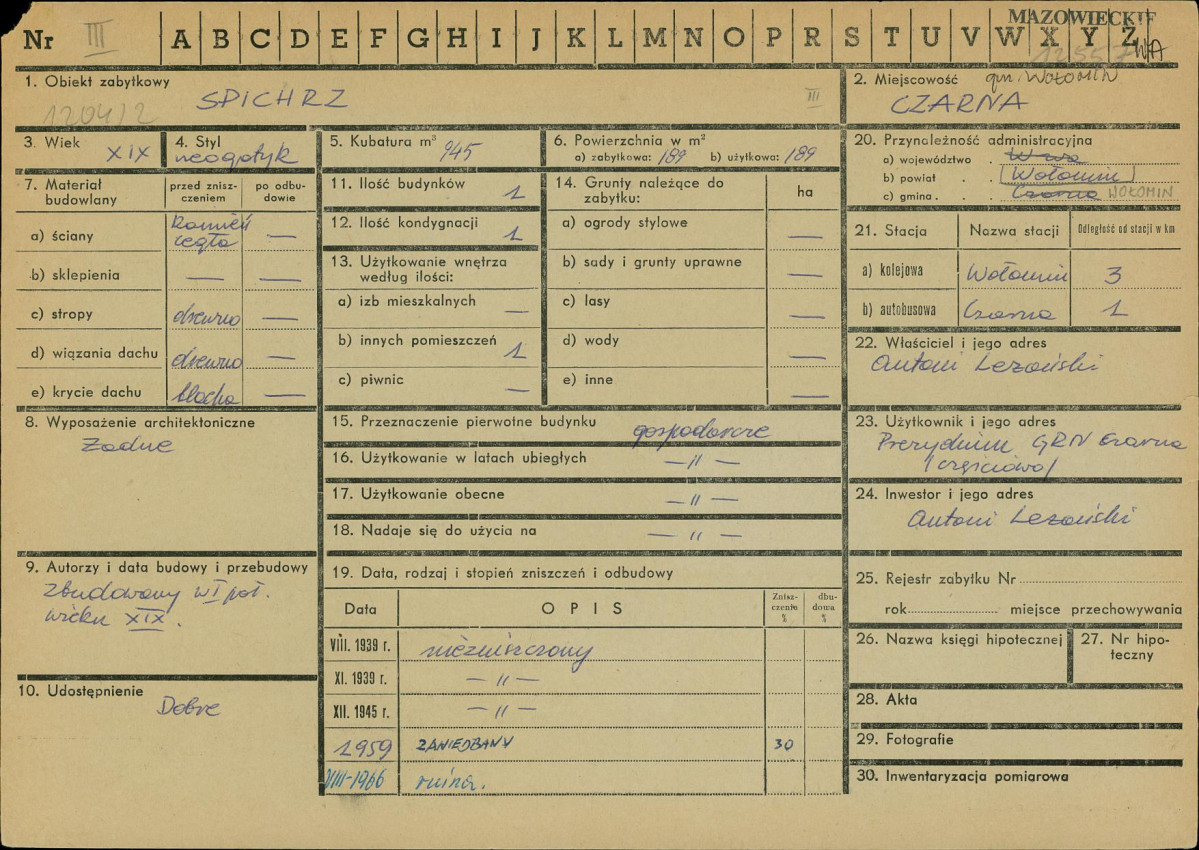 MAZOWIECKIE
Nr III A B C D E F G H I J K L M N O P R S T U V W X Y Z
W/A
1. Obiekt zabytkowy
SPICHRZ
1204/2
III
2. Miejscowość gm. WOŁOMIN
CZARNA
3. Wiek XIX
4. Styl
neogotyk
5. Kubatura m³ 945
6. Powierzchnia w m²
a) zabytkowa: 189 b) użytkowa: 189
7. Materiał budowlany
przed zniszczeniem
po odbudowie
a) ściany kamień cegła —
b) sklepienia — —
c) stropy drewno —
d) wiązania dachu drewno —
e) krycie dachu blacha —
8. Wyposażenie architektoniczne
Żadne
9. Autorzy i data budowy i przebudowy
Zbudowany w I poł.
wieku XIX.
10. Udostępnienie
Dobre
11. Ilość budynków 1
12. Ilość kondygnacji 1
13. Użytkowanie wnętrza
według ilości:
a) izb mieszkalnych —
b) innych pomieszczeń 1
c) piwnic —
14. Grunty należące do
zabytku:
ha
a) ogrody stylowe —
b) sady i grunty uprawne —
c) lasy —
d) wody —
e) inne —
15. Przeznaczenie pierwotne budynku gospodarcze
16. Użytkowanie w latach ubiegłych —"—
17. Użytkowanie obecne —"—
18. Nadaje się do użycia na —"—
19. Data, rodzaj i stopień zniszczeń i odbudowy
Data OPIS Znisz-
czeniu
%
dbu-
dowa
%
VIII. 1939 r. niezniszczony
XI. 1939 r. —"—
XII. 1945 r. —"—
1959 ZANIEDBANY 30
VIII-1966 ruina.
20. Przynależność administracyjna
a) województwo . W-wa
b) powiat . . Wołomin
c) gmina . . . Czarna WOŁOMIN
21. Stacja Nazwa stacji Odległość od stacji w km
a) kolejowa Wołomin 3
b) autobusowa Czarna 1
22. Właściciel i jego adres
Antoni Lezański
23. Użytkownik i jego adres
Prezydium GRN Czarna
/częściowo/
24. Inwestor i jego adres
Antoni Lezański
25. Rejestr zabytku Nr
rok miejsce przechowywania
26. Nazwa księgi hipotecznej
27. Nr hipo-
teczny
28. Akta
29. Fotografie
30. Inwentaryzacja pomiarowa